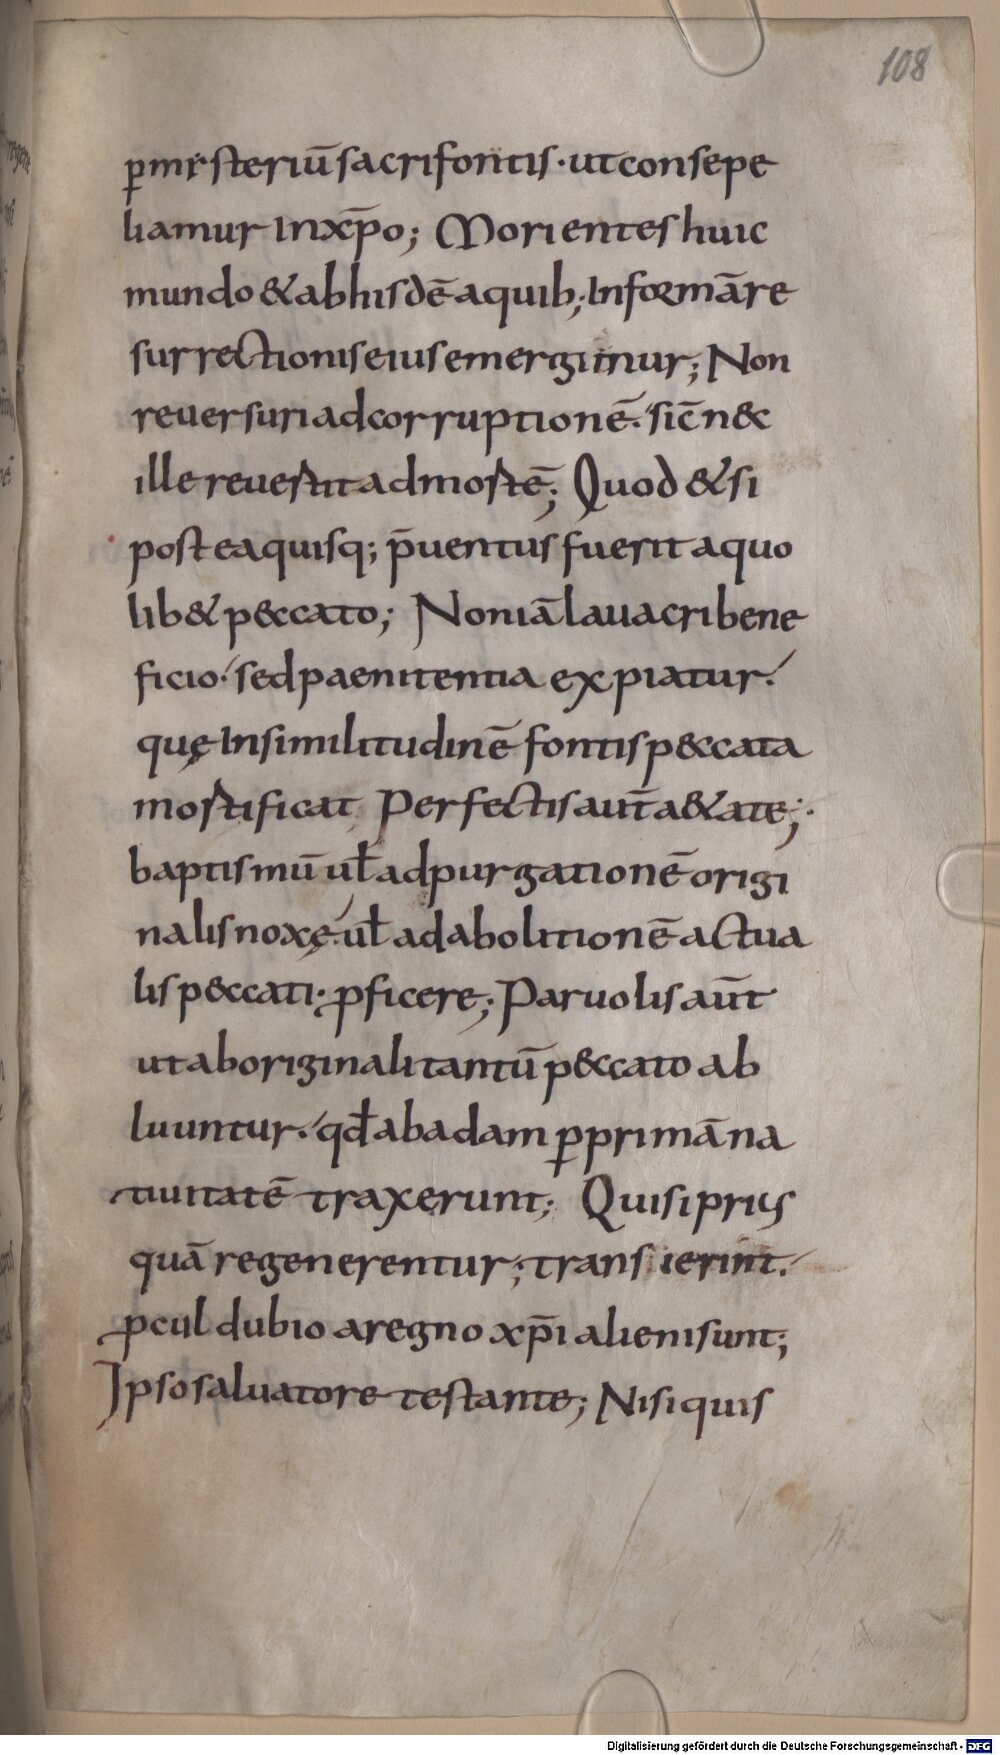 108
ꝑmysteriū sacri fontis· ut consepe
liamur in xp̄o; Morientes huic
mundo & ab hisdē a quib; In formā re
surrectionis eius emergimur; Non
reuersuri ad corruptionē·' sic̄ n &
ille reuertit ad mortē; Quod & si
postea quisq; p̄uentus fuerit a quo
lib& peccato; Non iā lauacri bene
ficio·' sed paenitentia expiatur·'
quę In similitudinē fontis p&ccata
mortificat Perfectis aut̄ a&ate;·
baptismū ul̄ ad purgationē origi
nalis noxę·' ul̄ ad abolitionē actua
lis p&ccati· ꝓficere; Paruolis aūt
ut ab originali tantū p&ccato ab
luuntur·' qd̄ ab adam ꝑ primā na
tiuitatē traxerunt; Qui si prius
quā regenerentur; transierint·'
ꝓcul dubio a regno xp̄i alieni sunt;
Ipso saluatore testante; Nisi quis
Digitalisierung gefördert durch die Deutsche Forschungsgemeinschaft - DFG